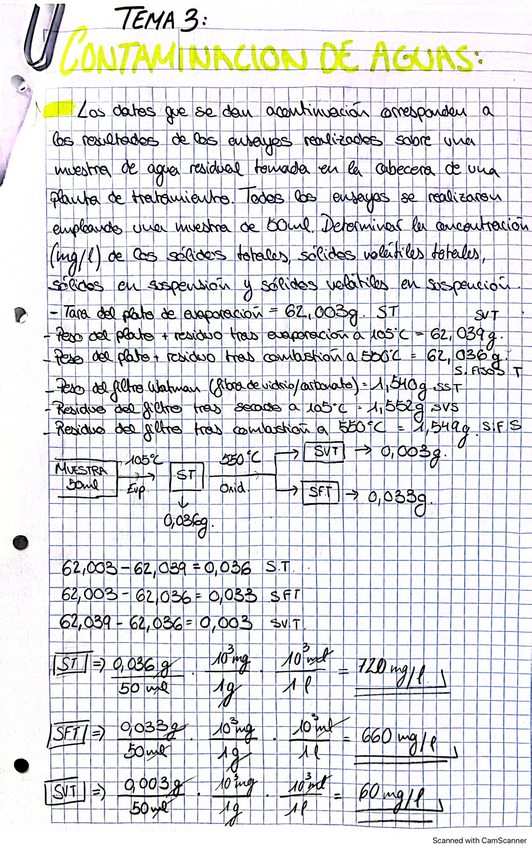 TEMA 3:
CONTAMINACION DE AGUAS:
Los datos que se dan acontinuación corresponden a
los resultados de los ensayos realizados sobre una
muestra de agua residual tomada en la cabecera de una
planta de tratamiento. Todos los ensayos se realizaron
empleando una muestra de 50ml. Determinar la concentración
(mg/l) de los sólidos totales, sólidos volátiles totales,
sólidos en suspensión y sólidos volátiles en suspención.
- Tara del plato de evaporación = 62,003g. ST
SVT
- Peso del plato + residuo tras evaporación a 105°C = 62,039g.
- Peso del plato + residuo tras combustión a 550°C = 62,036g.
S. FIJOS T
- Peso del filtro Watman (fibra de vidrio/carbonato) = 1,540g. SST
- Residuo del filtro tras secado a 105°C = 1,552g SVS
- Residuo del filtro tras combustión a 550°C = 1,549g. S.F.S
MUESTRA 50ml
105°C
Evp.
ST
550°C
Oxid.
SVT → 0,003g.
SFT → 0,033g.
0,036g.
62,003 - 62,039 = 0,036 S.T.
62,003 - 62,036 = 0,033 SFT
62,039 - 62,036 = 0,003 SV.T.
ST => 0,036g / 50 ml · 10³mg / 1g · 10³ml / 1l = 720 mg/l
SFT => 0,033g / 50ml · 10³mg / 1g · 10³ml / 1l = 660 mg/l
SVT => 0,003g / 50ml · 10³mg / 1g · 10³ml / 1l = 60 mg/l
Scanned with CamScanner